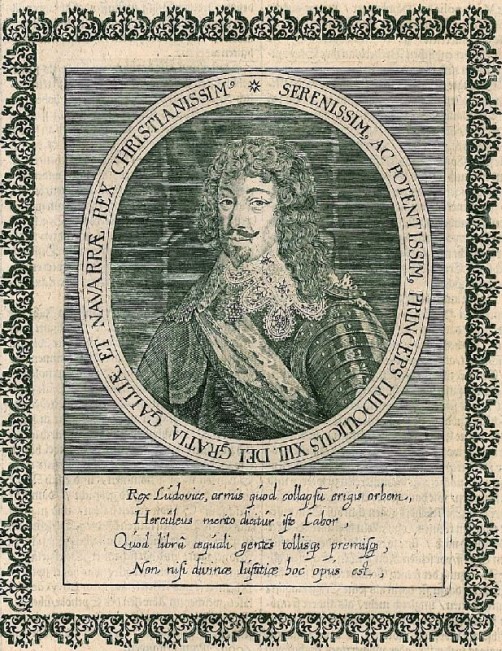 SERENISSIM, AC POTENTISSIM, PRINCEPS LUDOUICUS XIII. DEI GRATIA GALLIÆ ET NAVARRÆ REX CHRISTIANISSIMꝰ
Rex Lúdovice, armis qúod collapsú erigis orbem,
Hercúleus merito dicitúr iste Labor,
Qúod librâ æqúali gentes tollisqꝫ premisqꝫ,
Non nisi divinæ Iústitiæ hoc opús est,